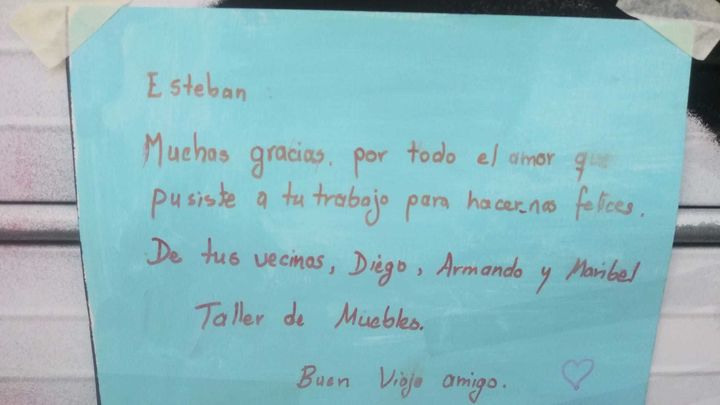 Esteban
Muchas gracias. por todo el amor que
pusiste a tu trabajo para hacer-nos felices.
De tus vecinos, Diego, Armando y Maribel
Taller de Muebles.
Buen Viaje amigo.